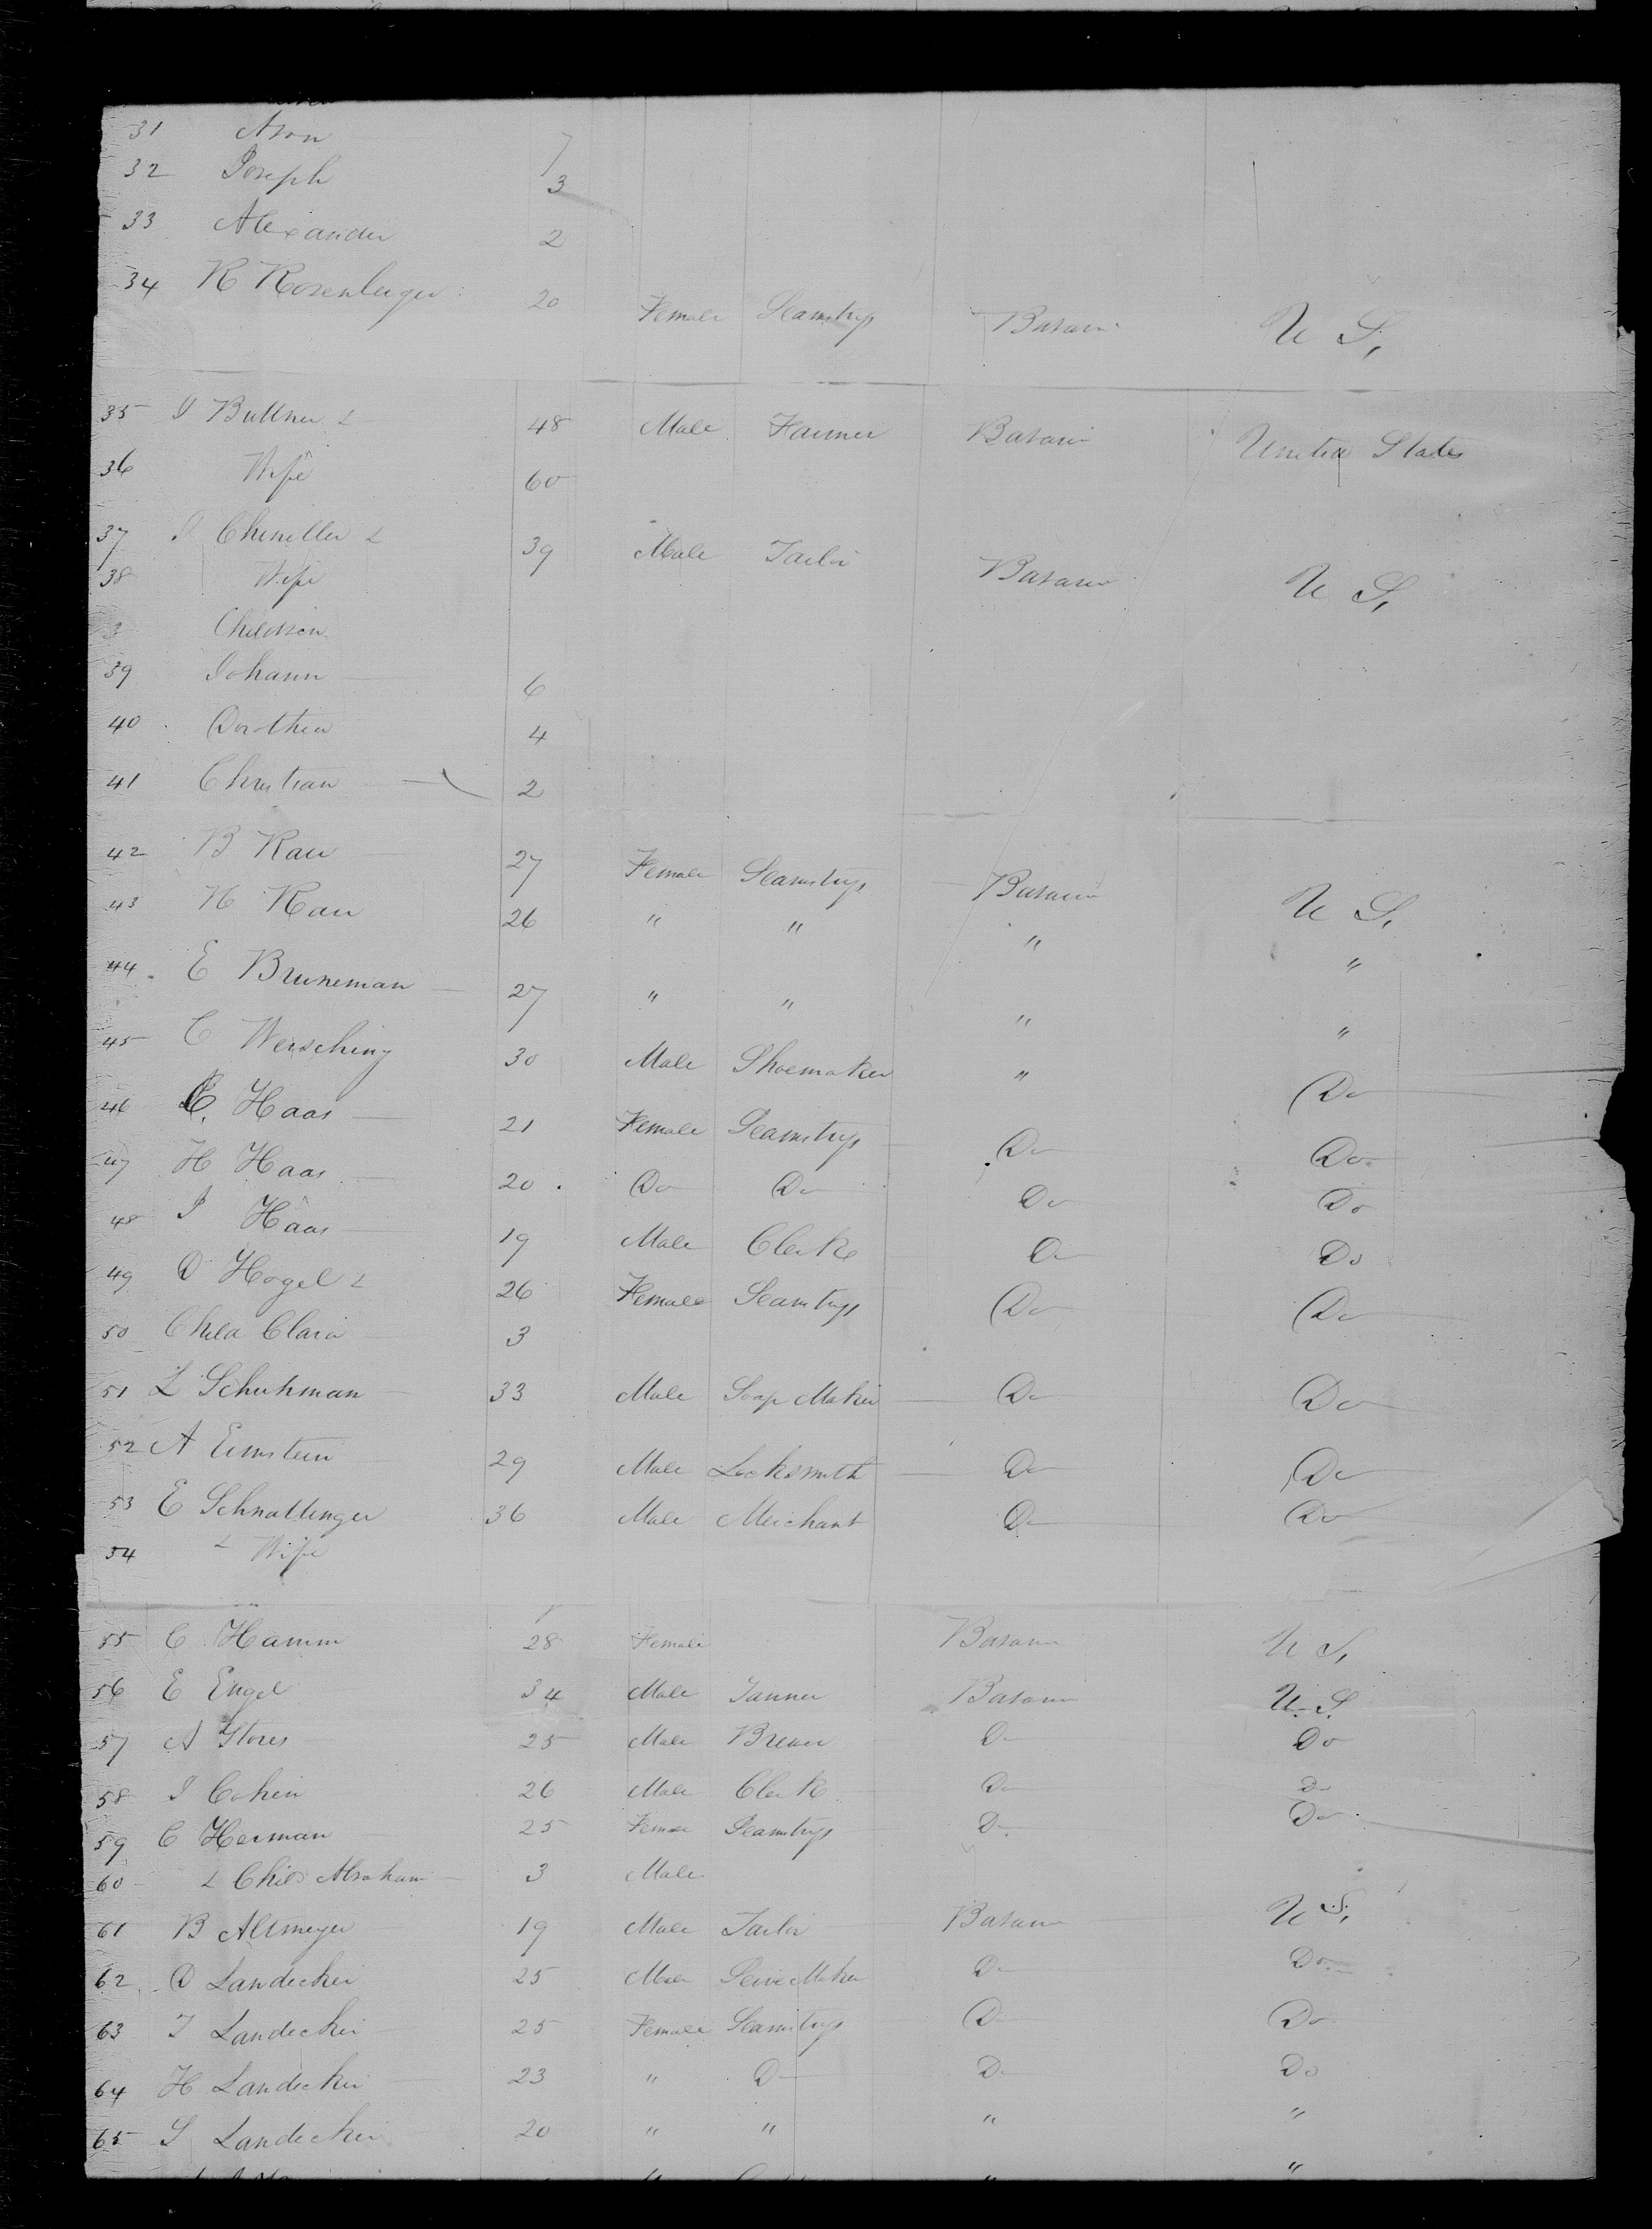 31 Aron 7
32 Joseph 3
33 Alexander 2
34 R Rosenberger 20 Female Seamstress Bavaria U S,
35 J Buttner & 48 Male Farmer Bavaria United States
36 Wife 60
37 J & 39 Male Tailor Bavaria U S,
38 Wife
3 Children
39 Johann 6
40 Dorothea 4
41 Christian 2
42 B Rau 27 Female Seamstress Bavaria U S,
43 Rau 26 " " " "
44 E Bruneman 27 " " " "
45 C Wersching 30 Male Shoemaker " Do
46 Haas 21 Female Seamstress Do Do
47 H Haas 20 Do Do Do Do
48 J Haas 19 Male Clerk Do Do
49 D Hogel & 26 Female Seamstress Do Do
50 Child Clara 3
51 L Schuhman 33 Male Soap Maker Do Do
52 A Einstein 29 Male Locksmith Do Do
53 E Schnattinger 36 Male Merchant Do Do
54 & Wife
55 C Hamm 28 Female Bavaria U S,
56 E Engel 34 Male Tanner Bavaria U. S.
57 A 25 Male Brewer Do Do
58 J Cohen 26 Male Clerk Do Do
59 C Herman 25 Female Seamstress Do Do
60 & Child Abraham 3 Male
61 B Altmeyer 19 Male Tailor Bavaria U S,
62 D Landecker 25 Male Maker Do Do
63 Landecker 25 Female Seamstress Do Do
64 H Landecker 23 " Do Do Do
65 S Landecker 20 " " " "